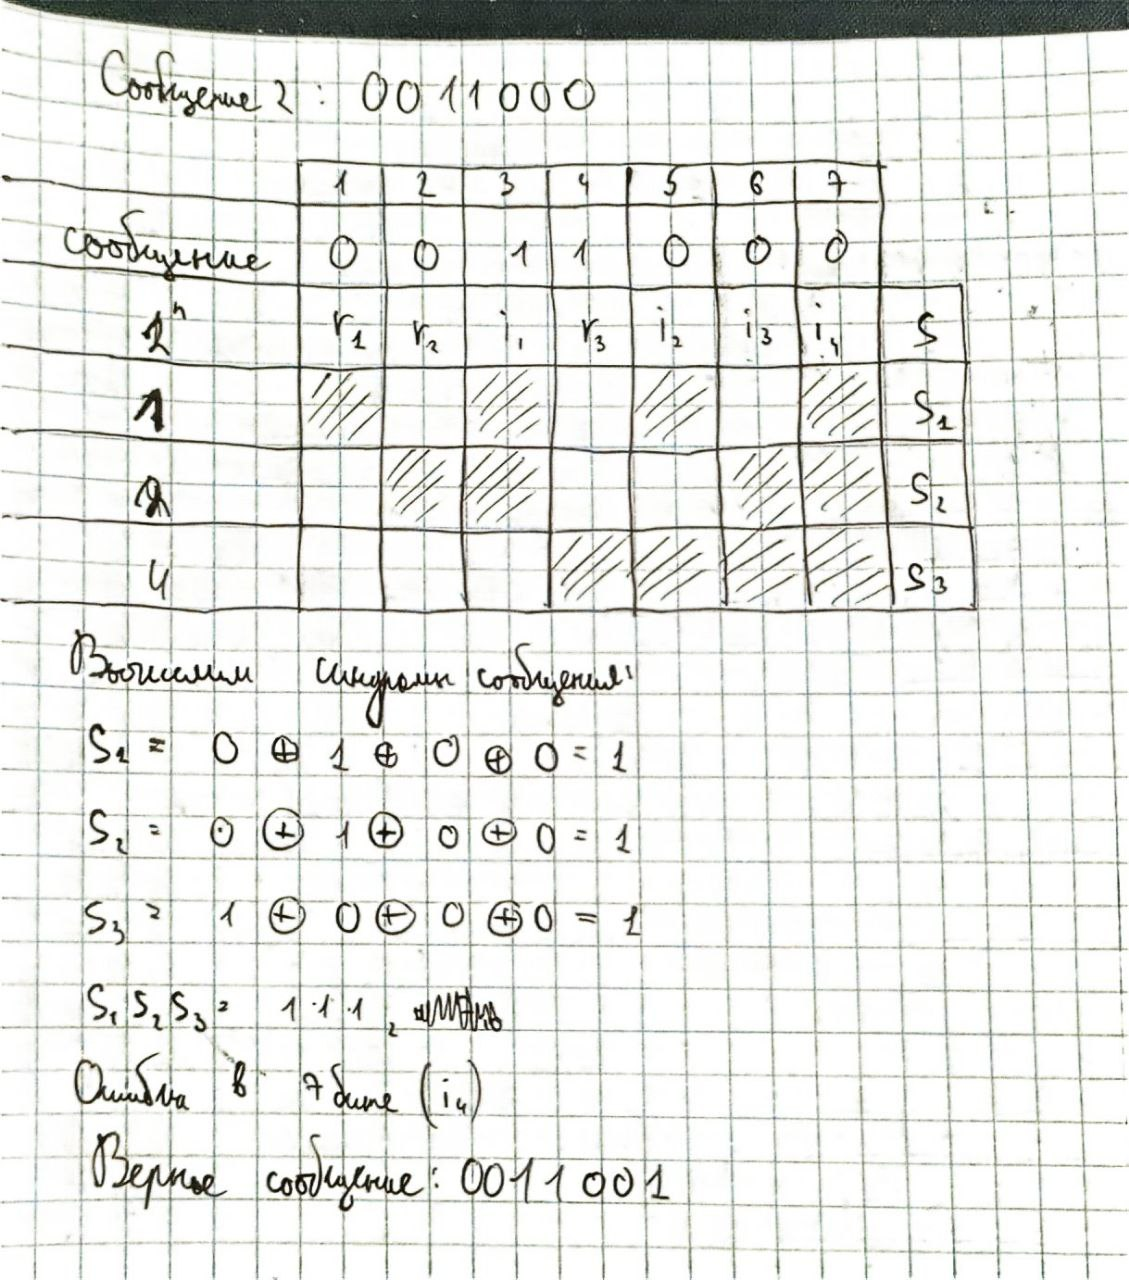 Сообщение 2: 0011000
1 2 3 4 5 6 7
сообщение 0 0 1 1 0 0 0
2ⁿ r₁ r₂ i₁ r₃ i₂ i₃ i₄ S
1 S₁
2 S₂
4 S₃
Вычислим синдромы сообщения:
S₁ = 0 ⊕ 1 ⊕ 0 ⊕ 0 = 1
S₂ = 0 ⊕ 1 ⊕ 0 ⊕ 0 = 1
S₃ = 1 ⊕ 0 ⊕ 0 ⊕ 0 = 1
S₁ S₂ S₃ = 1·1·1₂
Ошибка в 7 бите (i₄)
Верное сообщение: 0011001